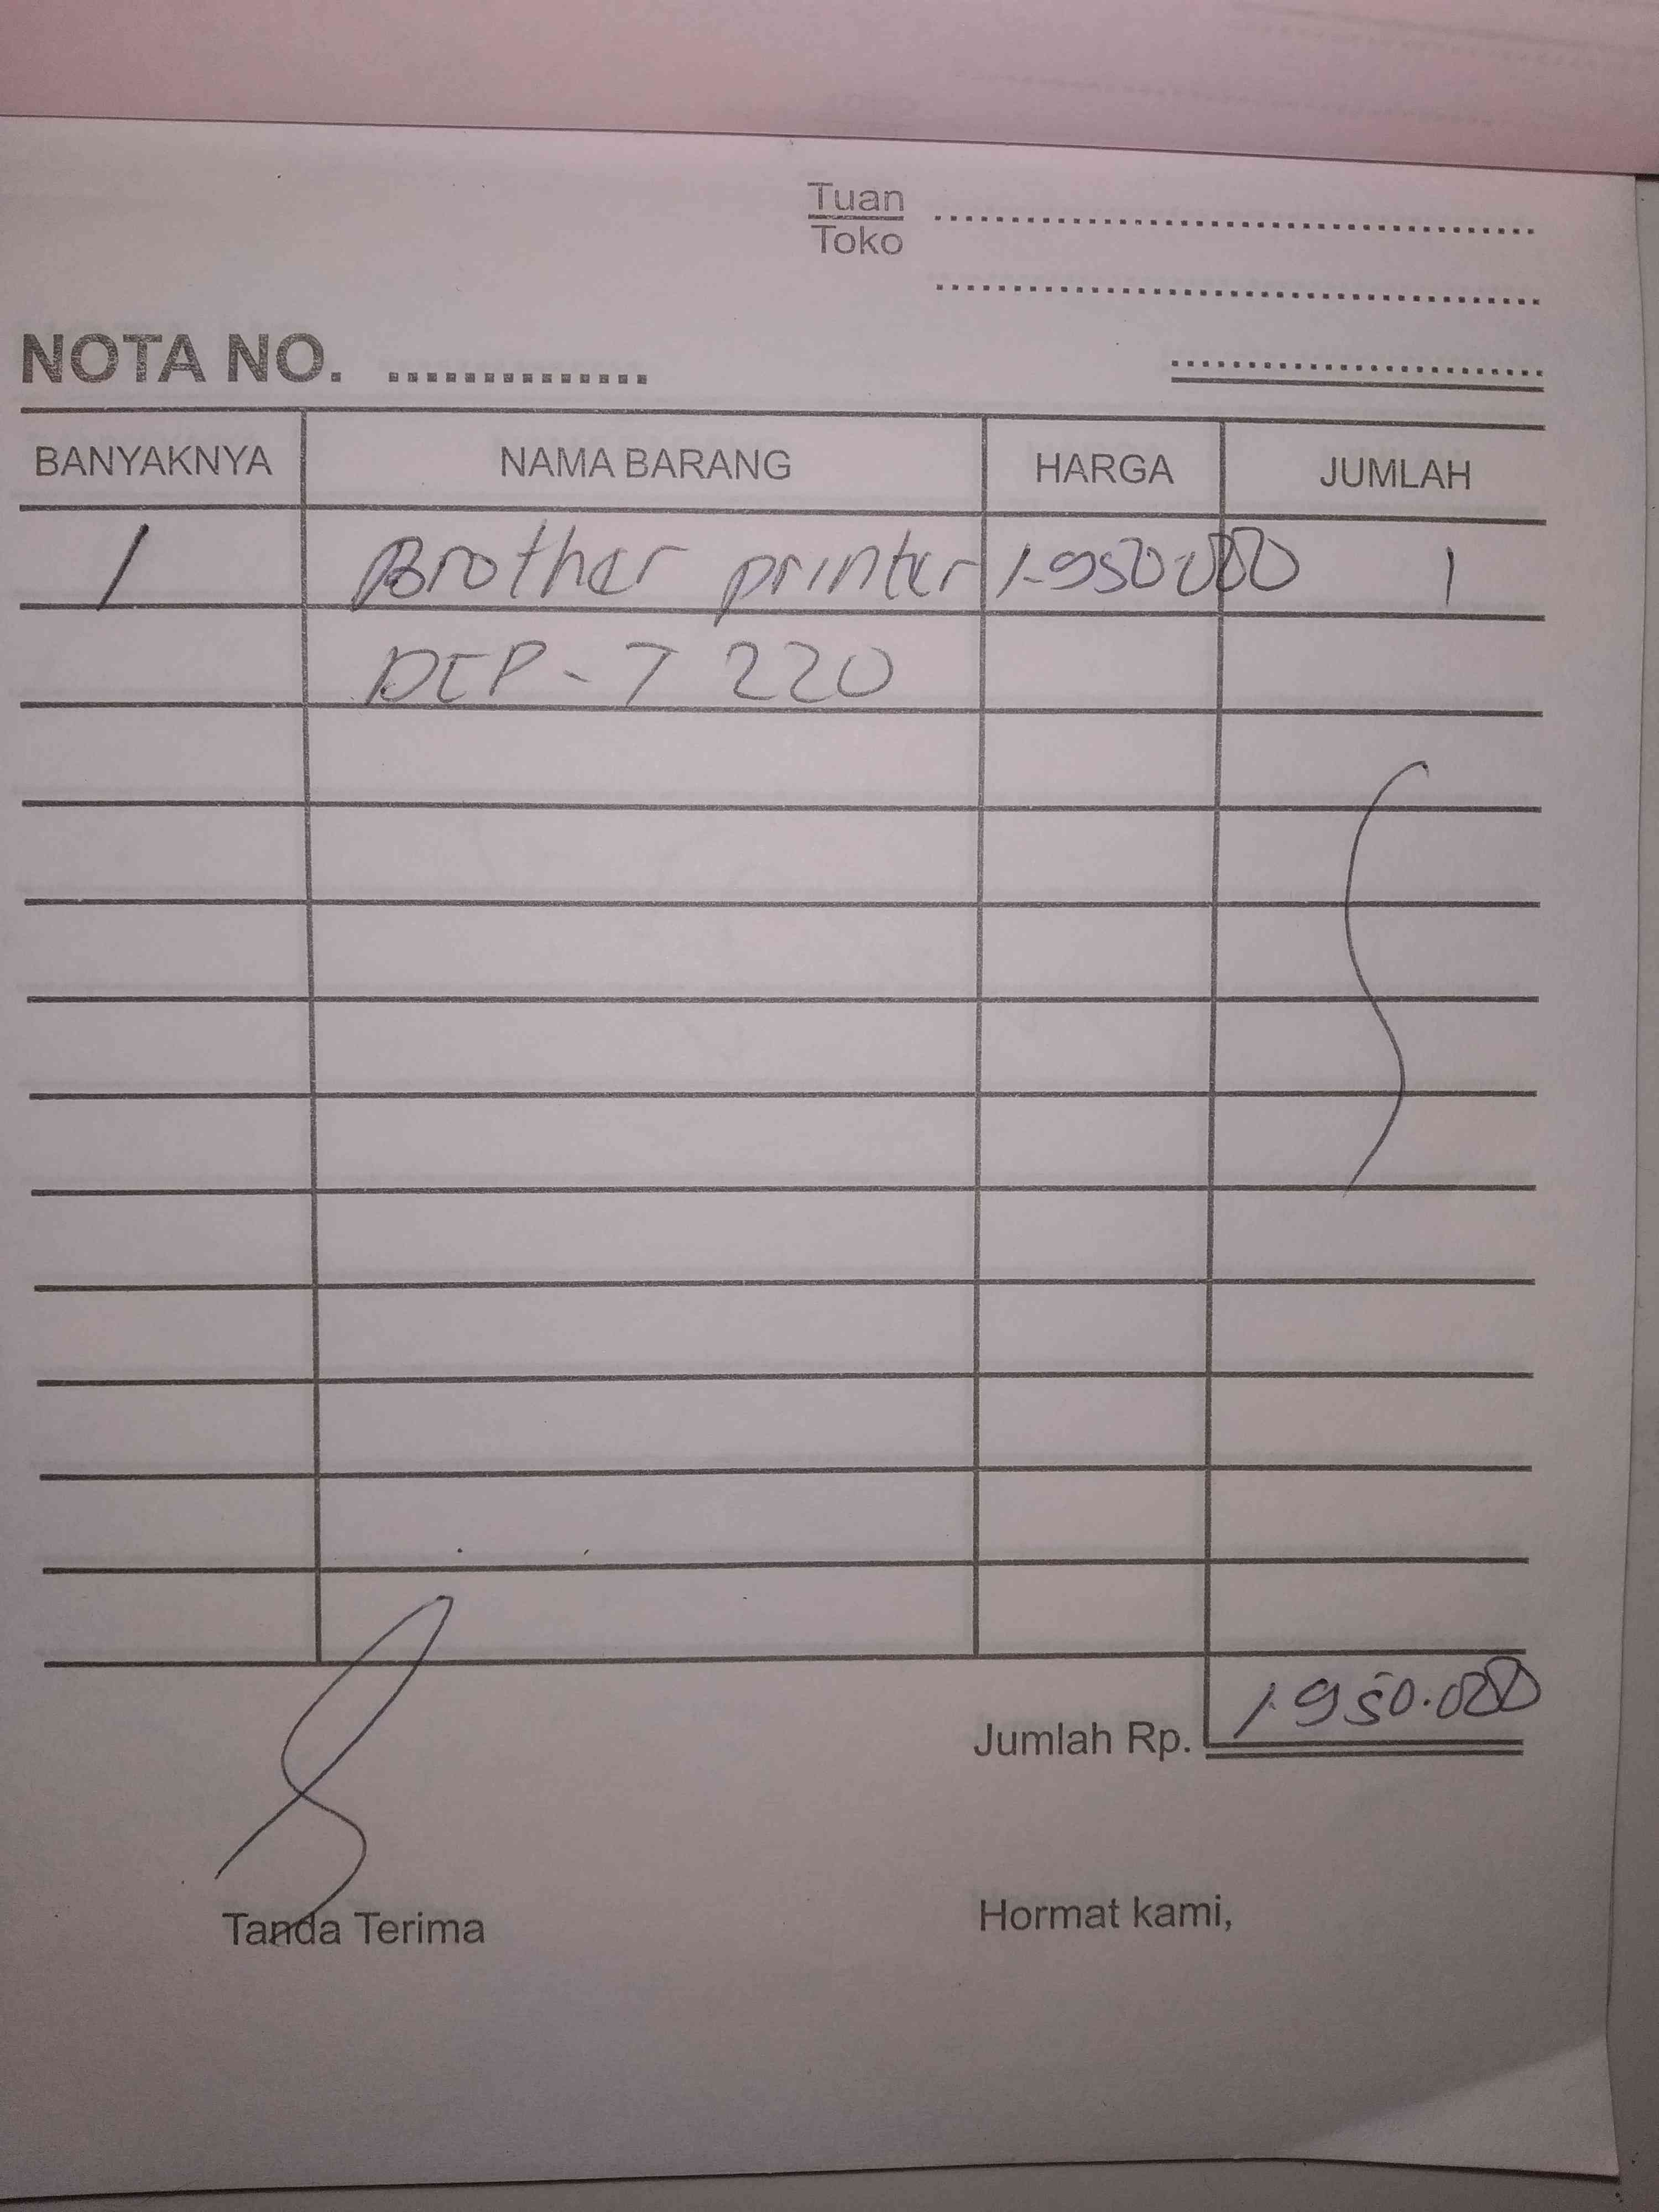 Tuan
Toko
NOTA NO.
BANYAKNYA NAMA BARANG HARGA JUMLAH
1 Brother printer 1.950.000 1
DCP - T 220
Jumlah Rp. 1.950.000
Tanda Terima Hormat kami,